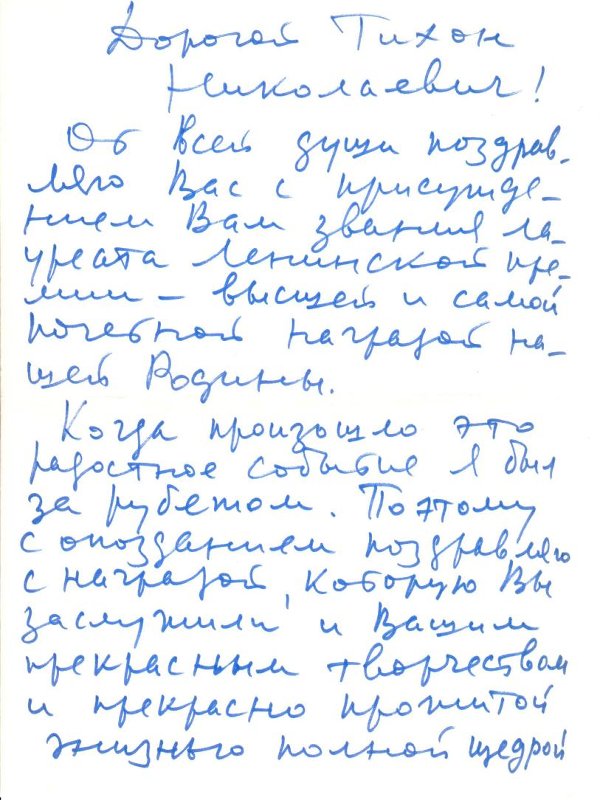 Дорогой Тихон
Николаевич!
От всей души поздрав-
ляю Вас с присужде-
нием Вам звания ла-
уреата Ленинской пре-
мии – высшей и самой
почетной наградой на-
шей Родины.
Когда произошло это
радостное событие я был
за рубежом. Поэтому
с опозданием поздравляю
с наградой, которую Вы
заслужили и Вашим
прекрасным творчеством
и прекрасно прожитой
жизнью полной щедрой